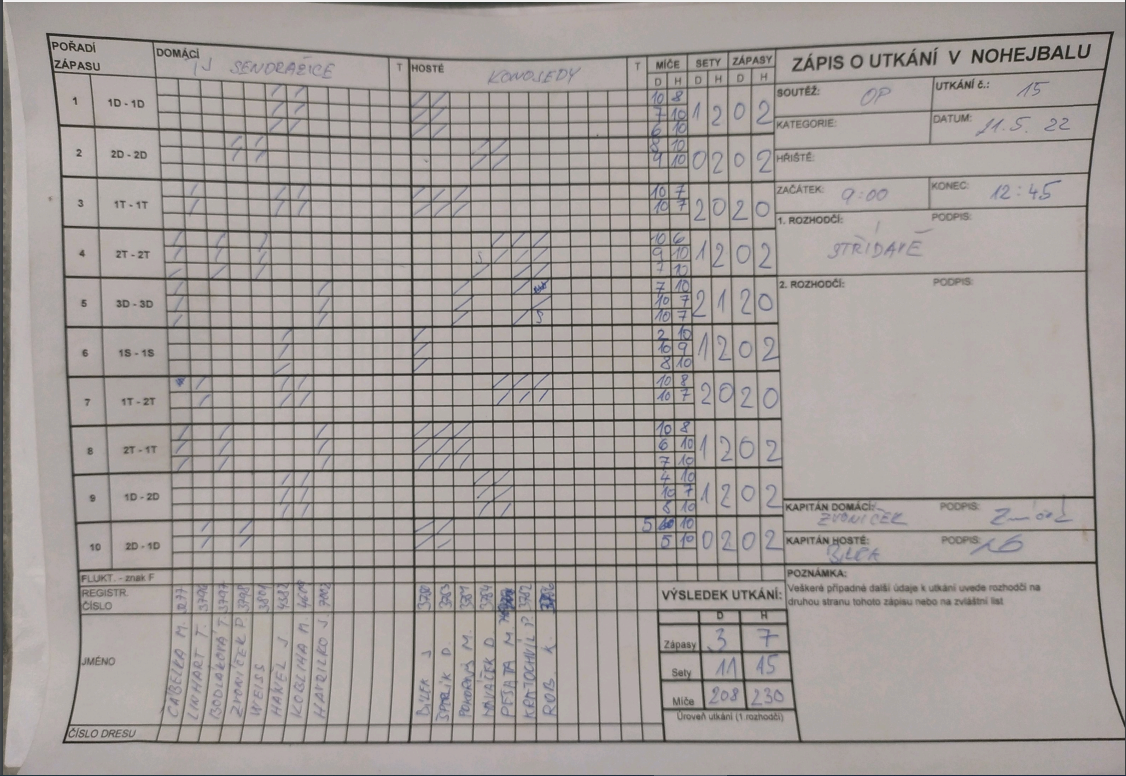 POŘADÍ ZÁPASU DOMÁCÍ SENDRAŽICE T HOSTÉ KONOJEDY T MÍČE SETY ZÁPASY
D H D H D H
1 1D - 1D 10 8 7 10 6 10 1 2 0 2
2 2D - 2D 8 10 4 10 0 2 0 2
3 1T - 1T 10 7 10 7 2 0 2 0
4 2T - 2T 10 6 9 10 7 10 1 2 0 2
5 3D - 3D 7 10 10 7 10 7 2 1 2 0
6 1S - 1S 2 10 10 9 8 10 1 2 0 2
7 1T - 2T 10 8 10 7 2 0 2 0
8 2T - 1T 10 8 6 10 7 10 1 2 0 2
9 1D - 2D 4 10 10 7 8 10 1 2 0 2
10 2D - 1D 5 10 5 10 0 2 0 2
FLUKT. - znak F
REGISTR. ČÍSLO
JMÉNO
LINHART T.
BODLÁKOVÁ T.
ZVONÍČEK P.
WEISS
HAMEL J
KOBLIHA M.
BÍLEK J
POKORNÝ M.
NOVÁČEK D
PEŠATA M
KRATOCHVÍL P.
ROB K.
ČÍSLO DRESU
VÝSLEDEK UTKÁNÍ:
D H
Zápasy 3 7
Sety 11 15
Míče 208 230
Úroveň utkání (1.rozhodčí)
ZÁPIS O UTKÁNÍ V NOHEJBALU
SOUTĚŽ: OP UTKÁNÍ č.: 15
KATEGORIE: DATUM: 21.5. 22
HŘIŠTĚ:
ZAČÁTEK: 9:00 KONEC: 12:45
1. ROZHODČÍ: PODPIS:
STŘÍDAVĚ
2. ROZHODČÍ: PODPIS:
KAPITÁN DOMÁCÍ: PODPIS:
ZVONÍČEK
KAPITÁN HOSTÉ: PODPIS:
POZNÁMKA:
Veškeré případné další údaje k utkání uvede rozhodčí na
druhou stranu tohoto zápisu nebo na zvláštní list